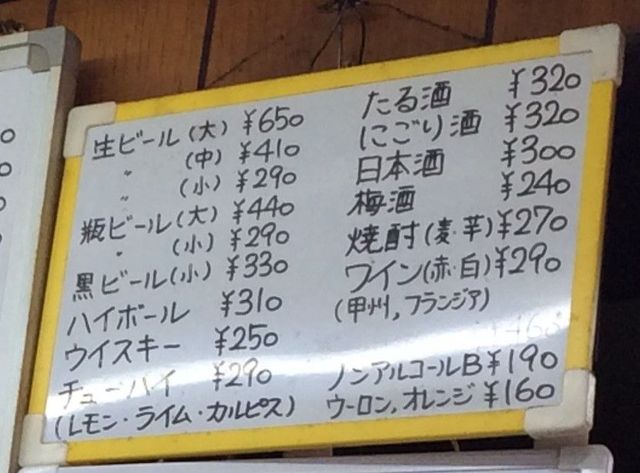 生ビール(大) ¥650
〃 (中) ¥410
〃 (小) ¥290
瓶ビール(大) ¥440
〃 (小) ¥290
黒ビール(小) ¥330
ハイボール ¥310
ウイスキー ¥250
チューハイ ¥290
(レモン・ライム・カルピス)
たる酒 ¥320
にごり酒 ¥320
日本酒 ¥300
梅酒 ¥240
焼酎(麦・芋) ¥270
ワイン(赤・白) ¥290
(甲州,フランジア)
ノンアルコールB ¥190
ウーロン,オレンジ ¥160